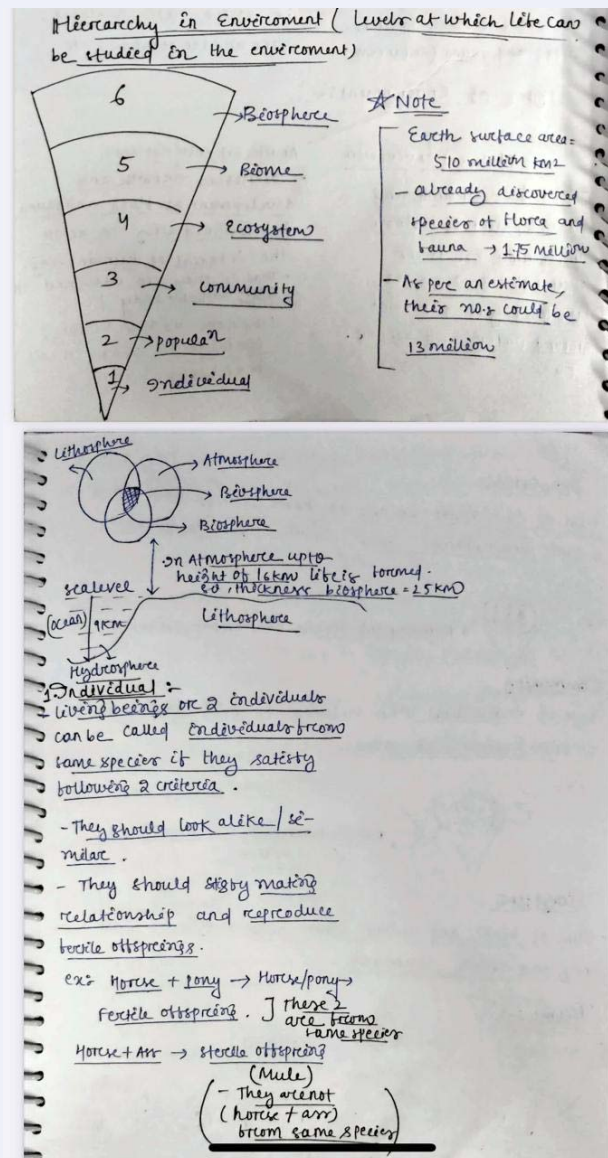 Hierarchy in Enviroment ( levels at which life can
be studied in the enviroment)
6
→Biosphere
5
→ Biome
4
→ Ecosystem
3
→ community
2
→ populaⁿ
1
→ Individual
☆ Note
Earth surface area=
510 million km2
- already discovered
species of flora and
fauna → 1.75 Million
- As per an estimate,
their no.s could be
13 million
Lithosphere
→ Atmosphere
→ Biosphere
→ Biosphere
In Atmosphere upto
height of 16km life is formed.
so, thickness biosphere = 25 KM
sealevel
(ocean) 9km
Lithosphere
Hydrosphere
1 Individual :-
2 living beings or 2 individuals
can be called individuals from
same species if they satisfy
following 2 criteria .
- They should look alike / si-
milar .
- They should stisby mating
relationship and reproduce
fertile offsprings.
ex: Horse + pony → Horse/pony→
Fertile offspring . ] these 2
are from
same species
Horse + Ass → sterile offspring
(Mule)
- They are not
(horse + ass)
from same species